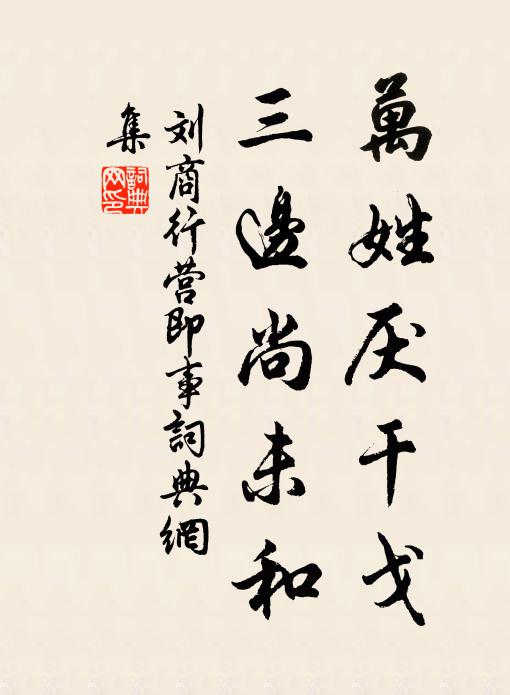 萬姓厌干戈
三邊尚未和
刘商行营即事詞典網
集
詞典網印